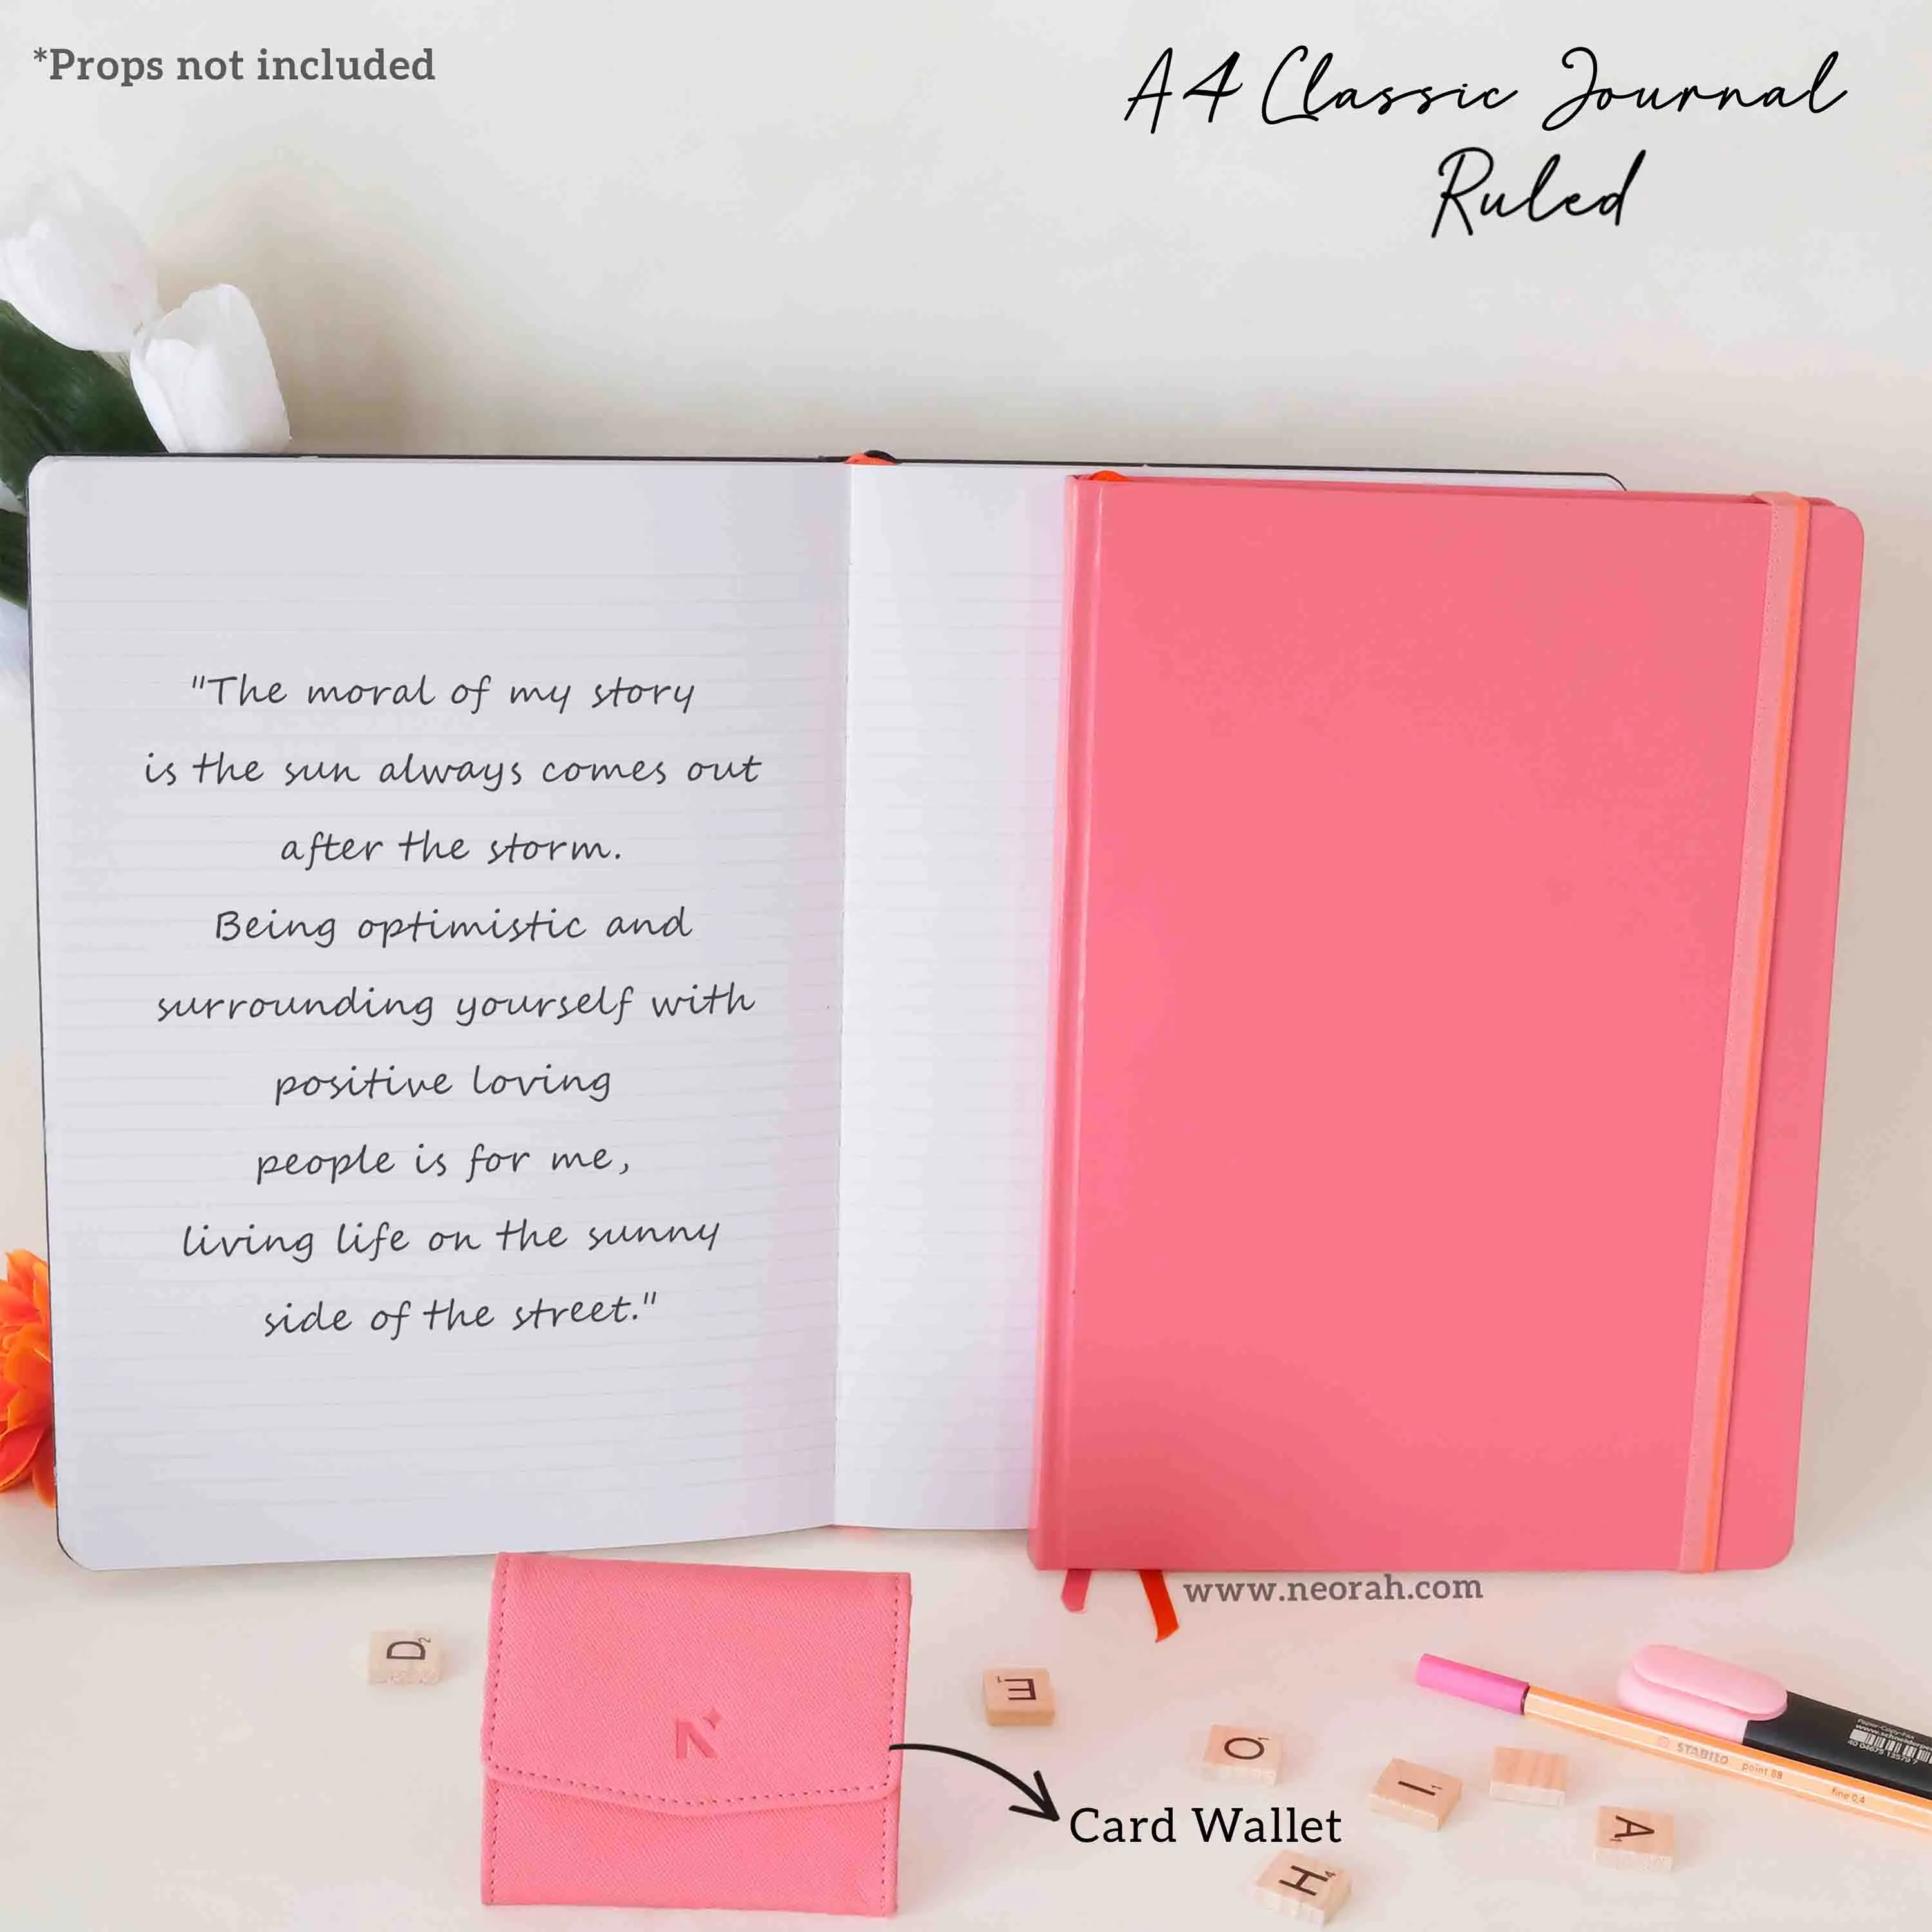 *Props not included
A4 Classic Journal
Ruled
"The moral of my story
is the sun always comes out
after the storm.
Being optimistic and
surrounding yourself with
positive loving
people is for me,
living life on the sunny
side of the street."
www.neorah.com
D2
E1
N
O1
I1
A1
H4
Card Wallet
STABILO point 88 fine 0,4